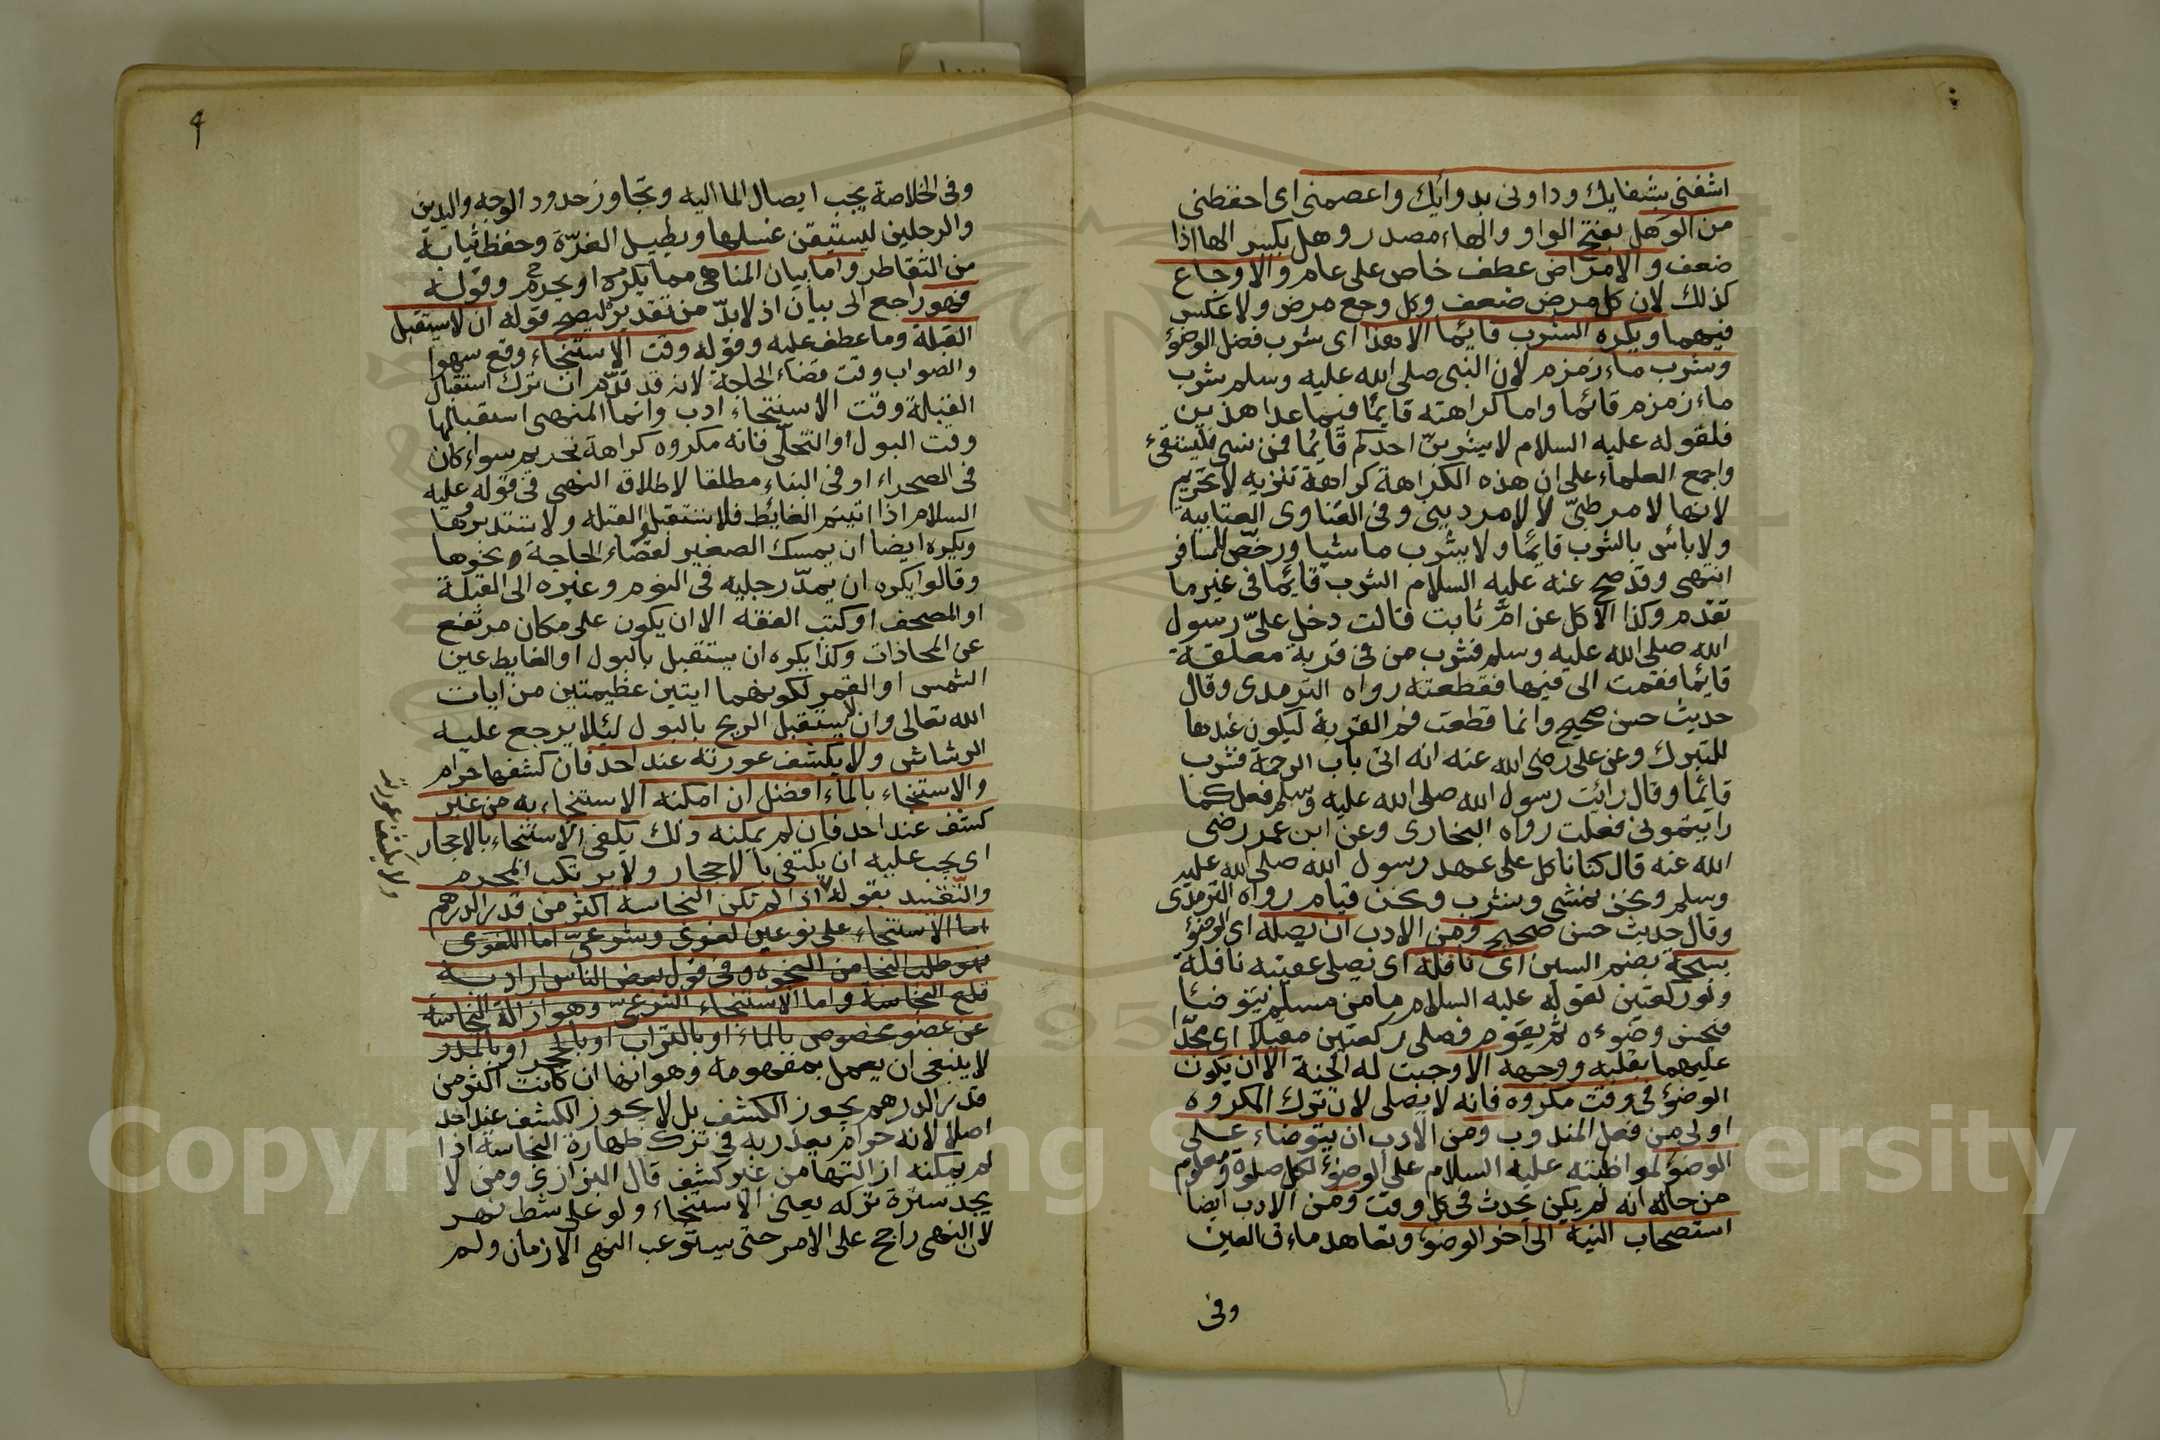 اشفنى بشفايك وداونى بدوائك واعصمنى اى احفظنى
من الوهل بفتح الواو والهاء مصدر وهل بكسر الها اذا
ضعف والامراض عطف خاص على عام والاوجاع
كذلك لان كل مرض ضعف وكل وجع مرض ولا عكس
فيهما ويكره الشرب قايما الا هذا اى شرب فضل الوضؤ
وشرب ماء زمزم لان النبى صلى الله عليه وسلم شرب
ماء زمزم قائما واما كراهته قايما فيما عدا هذين
فلقوله عليه السلام لا يشربن احدكم قايما فمن نسى فليستقئ
واجمع العلماء على ان هذه الكراهة كراهة تنزيه لا تحريم
لانها لامر طبى لا لامر دينى وفى الفتاوى العتابية
ولا باس بالشرب قايما ولا يشرب ماشيا ورخص للمسافر
انتهى وقد صح عنه عليه السلام الشرب قائما فى غير ما
تقدم وكذا الاكل عن ام ثابت قالت دخل على رسول
الله صلى الله عليه وسلم فشرب من فى قربة معلقة
قائما فقمت الى فيها فقطعته رواه الترمدى وقال
حديث حسن صحيح وانما قطعت فم القربة ليكون عندها
للتبرك وعن على رضى الله عنه انه اتى باب الرحبة فشرب
قائما وقال رائت رسول الله صلى الله عليه وسلم فعل كما
رايتمونى فعلت رواه البخارى وعن ابن عمر رضى
الله عنه قال كنا ناكل على عهد رسول الله صلى الله عليه
وسلم ونحن نمشى ونشرب ونحن قيام رواه الترمدى
وقال حديث حسن صحيح ومن الادب ان يصله اى الوضؤ
بسبحة بضم السين اى نافلة اى يصلى عقيبه نافلة
ولو ركعتين لقوله عليه السلام ما من مسلم يتوضأ
فيحسن وضوءه ثم يقوم فصلى ركعتين مقبلا اى مجدا
عليهما بقلبه ووجهه الا وجبت له الجنة الا ان يكون
الوضؤ فى وقت مكروه فانه لا يصلى لان ترك المكروه
اولى من فعل المندوب ومن الادب ان يتوضاء على
الوضؤ لمواظبته عليه السلام على الوضؤ لكل صلوة ومعلوم
من حاله انه لم يكن يحدث فى كل وقت ومن الادب ايضا
استصحاب النية الى آخر الوضو وتعاهد ماء ق العين
وفى
٩
وفى الخلاصة يجب ايصال الما اليه وتجاوز حدود الوجه واليدين
والرجلين ليستيقن غسلها ويطيل الغرة وحفظ ثيابه
من التقاطر واما بيان المناهى مما يكره او يحرم وقوله
فهو راجع الى بيان اذ لا بد من تقديره ليصح قوله ان لا يستقبل
القبلة وما عطف عليه وقوله وقت الاستنجاء وقع سهوا
والصواب وقت قضاء الحاجة لانه قد قدم ان ترك استقبال
القبلة وقت الاستنجاء ادب وانما المنهى استقبالها
وقت البول او التخلى فانه مكروه كراهة تحريم سواء كان
فى الصحراء او فى البناء مطلقا لاطلاق النهى فى قوله عليه
السلام اذا اتيتم الغائط فلا تستقبلوا القبله ولا تستدبروها
ويكره ايضا ان يمسك الصغير لقضاء الحاجة نحوها
وقالوا يكره ان يمد رجليه فى النوم وغيره الى القبلة
او المصحف او كتب الفقه الا ان يكون على مكان مرتفع
عن المحاذات وكذا يكره ان يستقبل بالبول او الغايط عين
الشمس او القمر لكونهما ايتين عظيمتين من ايات
الله تعالى وان لا يستقبل الريح بالبول لئلا يرجع عليه
الرشاش ولا يكشف عورته عند احد فان كشفها حرام
والاستنجاء بالماء افضل ان امكنه الاستنجاء به من غير
كشف عند احد فان لم يمكنه ذلك يكفى الاستنجاء بالاحجار
اى يجب عليه ان يكتفى بالاحجار ولا يرتكب المحرم
والتقييد بقوله اذا لم تكن النجاسة اكثر من قدر الدرهم
اما الاستنجاء على نوعين لغوى وشرعى اما اللغوى
هو طلب النجا من النجوه وفى قول بعض الناس ارادبه
قلع النجاسة واما الاستنجاء الشرعى وهو ازالة النجاسة
عن عضو مخصوص بالماء او بالتراب او بالحجر او بالمدر
لا ينبغى ان يعمل بمفهومه وهو انها ان كانت اكثر من
قدر الدرهم يجوز الكشف بل لا يجوز الكشف عند احد
اصلا لانه حرام يعذر به فى ترك طهارة النجاسة اذا
لم يمكنه ازالتها من غير كشف قال البزازى ومن لا
يجد سترة تركه يعنى الاستنجاء ولو على شط نهر
لان النهى راجح على الامر حتى يستوعب النهى الازمان ولم
ولا يكشف عورته
Copyr ng S ersity
195